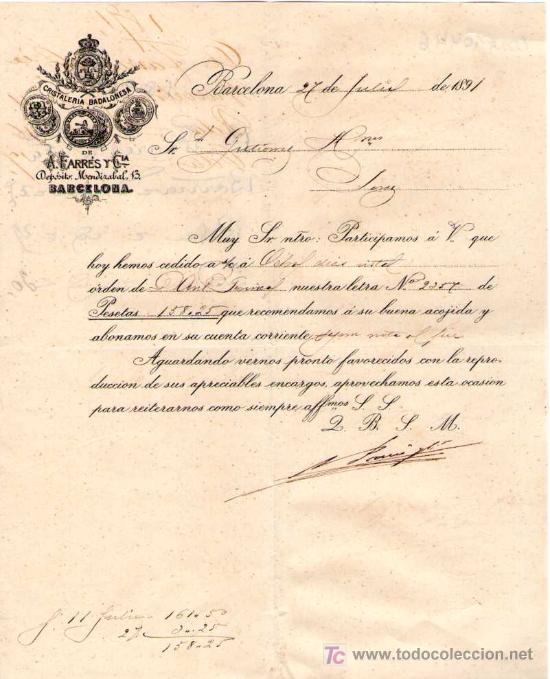 CRISTALERIA BADALONESA
DE
A. FARRÉS Y Cía
Depósito: Mendizabal, 13.
BARCELONA.
Barcelona 27 de Julio de 1891
Sr. Gutierrez Hnos
Jerez
Muy Sr ntro: Participamos á V. que
hoy hemos cedido a c/ á Ocho dias vista
orden de D. Ant nuestra letra No 2357 de
Pesetas 158.25 que recomendamos á su buena acojida y
abonamos en su cuenta corriente segun nota al pie
Aguardando vernos pronto favorecidos con la repro-
duccion de sus apreciables encargos, aprovechamos esta ocasion
para reiterarnos como siempre affmos S. S.
Q. B. S. M.
f. 11 Julio 161.50
27 3.25
158.25
TC www.todocoleccion.net